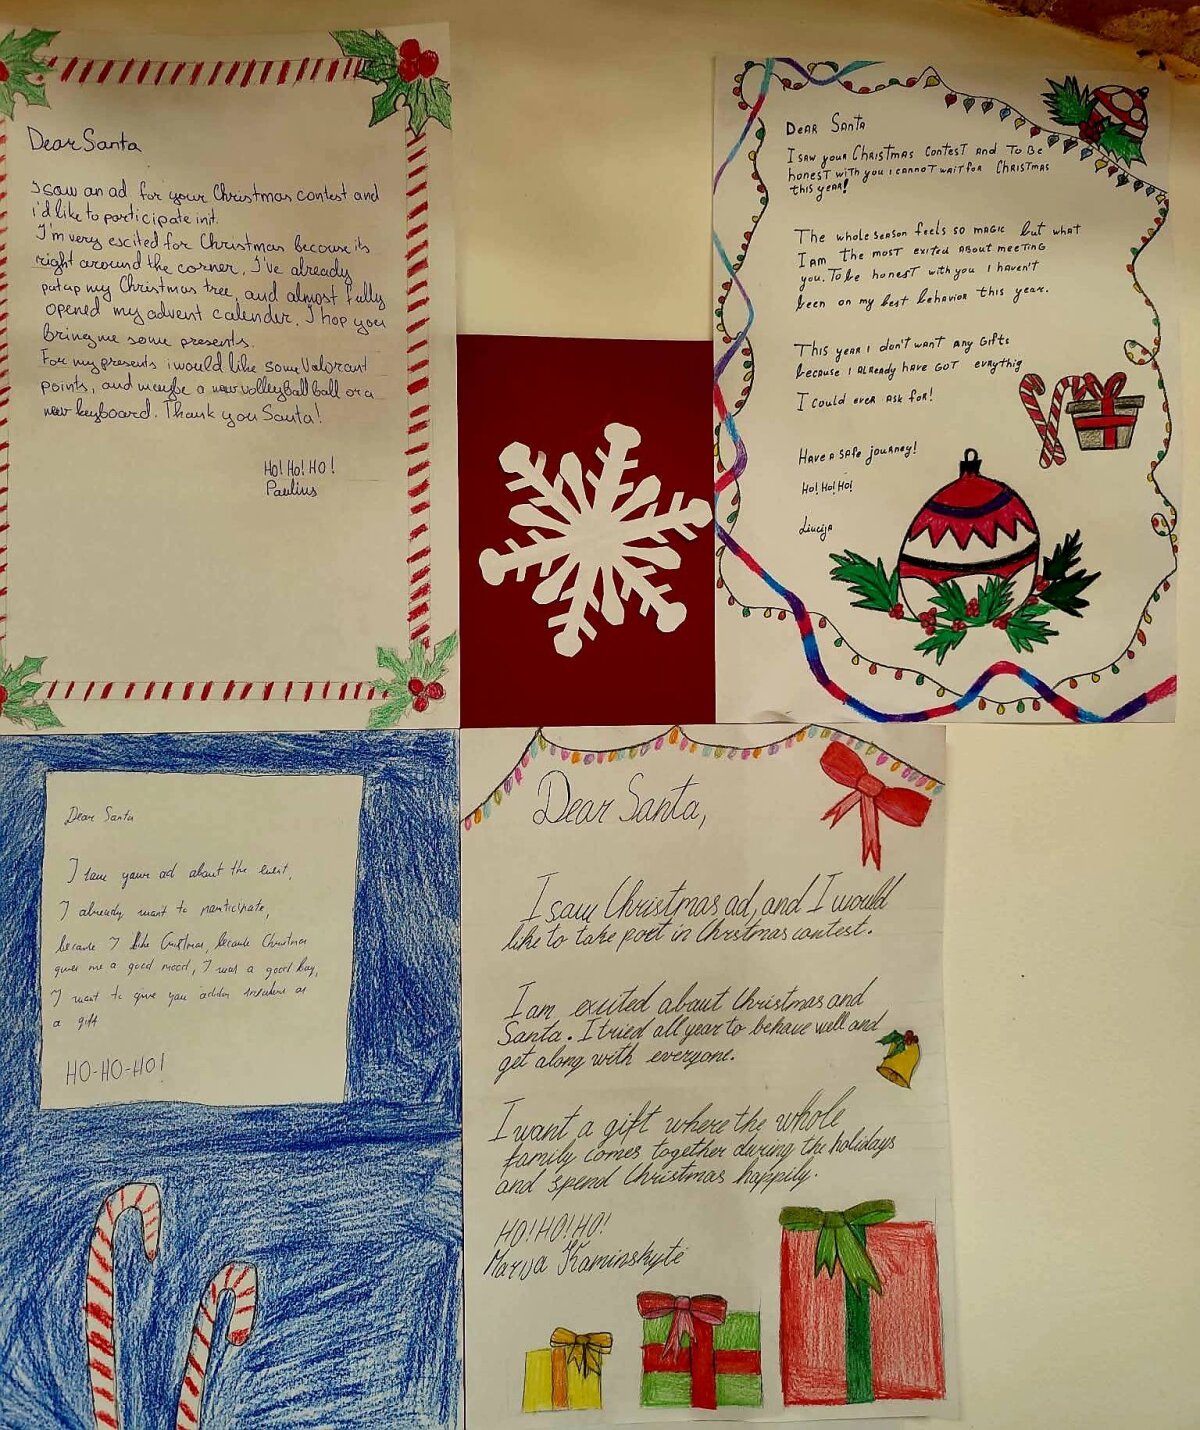 Dear Santa
I saw an ad for your Christmas contest and
i'd like to participate in it.
I'm very excited for Christmas because its
right around the corner. I've already
put up my Christmas tree, and almost fully
opened my advent calender. I hop you
bring me some presents.
For my presents i would like some Valorant
points, and maybe a new volleyball ball or a
new keyboard. Thank you Santa!
Ho! Ho! HO!
Paulius
Dear Santa
I saw your Christmas contest and To Be
honest with you I cannot wait for Christmas
this year!
The whole season feels so magic but what
I am the most exited about meeting
you. To be honest with you I haven't
been on my best behavior this year.
This year I don't want any gifts
because I already have got evrything
I could ever ask for!
Have a safe journey!
Ho! Ho! Ho!
Liucija
Dear Santa
I saw your ad about the event,
I already want to participate,
because I like Cristmas, because Christmas
gives me a good mood, I was a good boy,
I want to give you as
a gift
HO-HO-HO!
Dear Santa,
I saw Christmas ad, and I would
like to take part in Chrstmas contest.
I am exited about Christmas and
Santa. I tried all year to behave well and
get along with everyone.
I want a gift where the whole
family comes together during the holidays
and spend Christmas happily.
HO! HO! HO!
Kaminskytė